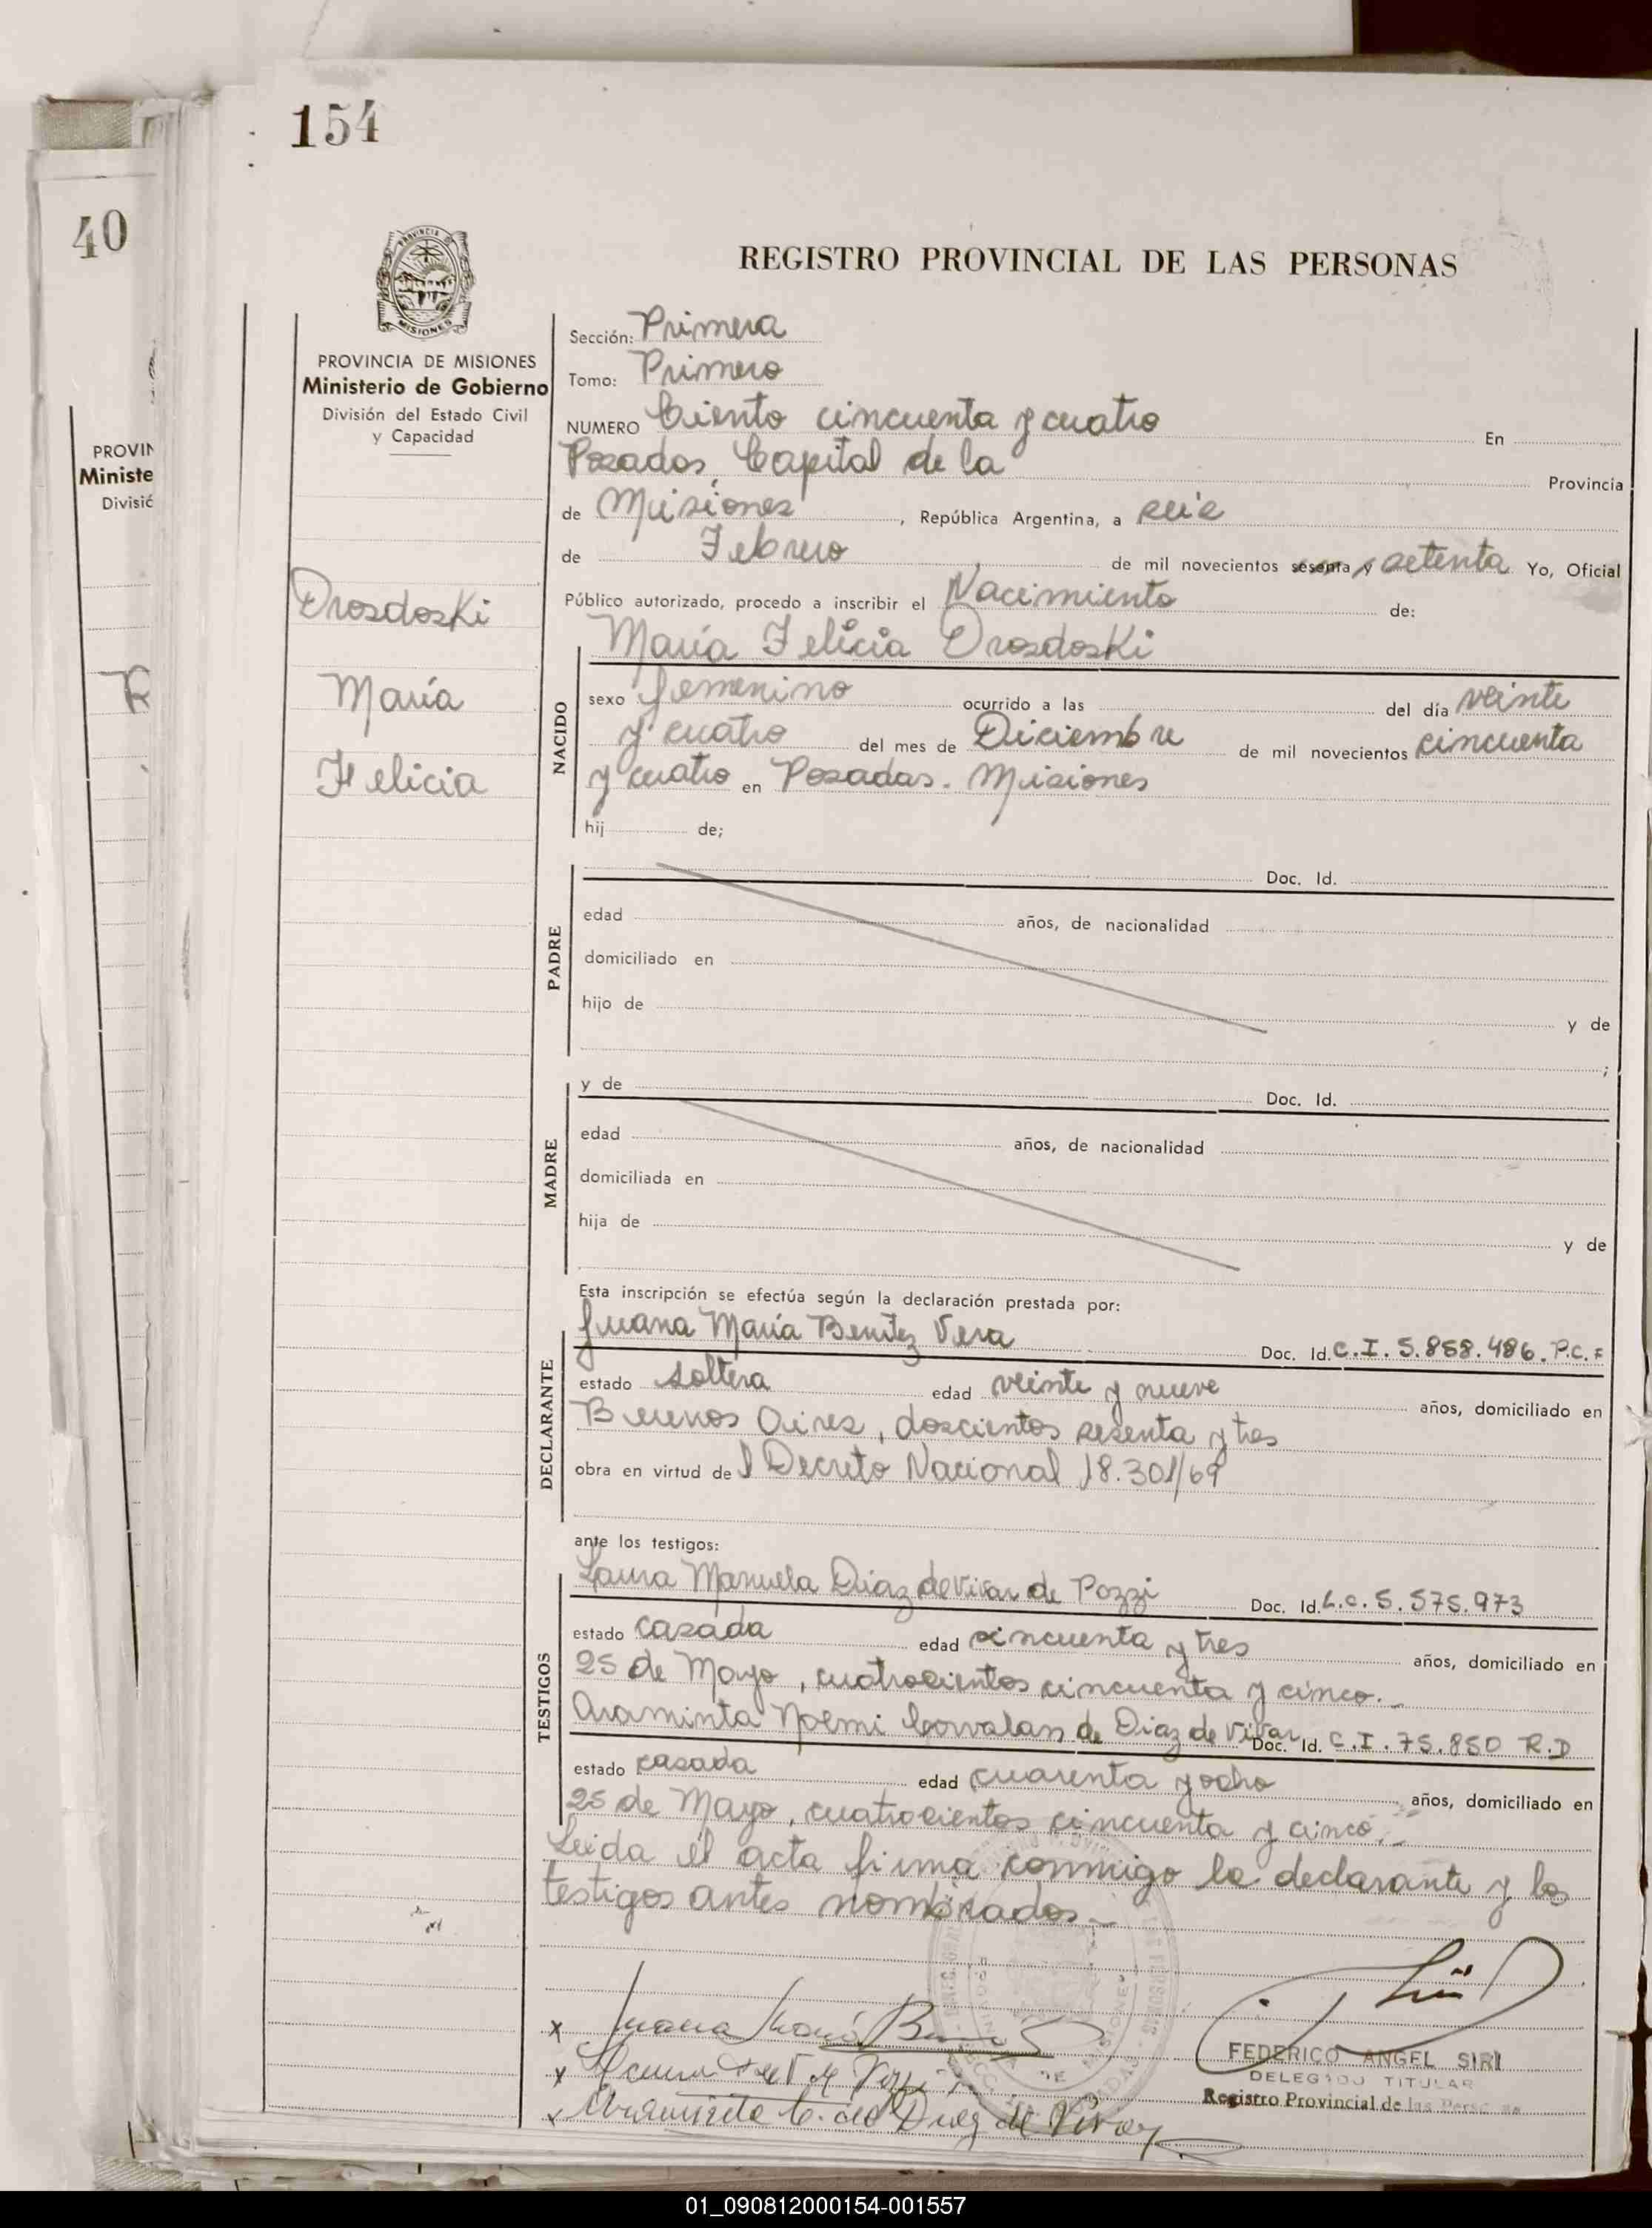 154
40
PROVINCIA
MISIONES
REGISTRO PROVINCIAL DE LAS PERSONAS
PROVINCIA DE MISIONES
Ministerio de Gobierno
División del Estado Civil
y Capacidad
PROVIN
Ministe
Divisió
Sección: Primera
Tomo: Primero
NUMERO Ciento cincuenta y cuatro En
Posadas, Capital de la Provincia
de Misiones, República Argentina, a seis
de Febrero de mil novecientos sesenta y setenta Yo, Oficial
Público autorizado, procedo a inscribir el Nacimiento de:
Drosdoski
María
Felicia
María Felicia Drosdoski
NACIDO
sexo femenino ocurrido a las del día veinte
y cuatro del mes de Diciembre de mil novecientos cincuenta
y cuatro en Posadas. Misiones
hij de;
PADRE
Doc. Id.
edad años, de nacionalidad
domiciliado en
hijo de y de
;
MADRE
y de Doc. Id.
edad años, de nacionalidad
domiciliada en
hija de y de
Esta inscripción se efectúa según la declaración prestada por:
DECLARANTE
Juana María Benítez Vera Doc. Id. C.I. 5.858.486. P.C.F
estado soltera edad veinte y nueve años, domiciliado en
Buenos Aires, doscientos sesenta y tres
obra en virtud del Decreto Nacional 18.301/69
ante los testigos:
TESTIGOS
Laura Manuela Diaz de Vivar de Pozzi Doc. Id. L.C. 5.575.973
estado casada edad cincuenta y tres años, domiciliado en
25 de Mayo, cuatrocientos cincuenta y cinco.-
Araminta Noemi Corvalan de Diaz de Vivar Doc. Id. C.I. 75.850 R.D
estado casada edad cuarenta y ocho años, domiciliado en
25 de Mayo, cuatrocientos cincuenta y cinco.-
Leida el acta firma conmigo la declarante y los
testigos antes nombrados.-
x Juana María
x
x Araminta C. de Diaz de Vivar
FEDERICO ANGEL SIRI
DELEGADO TITULAR
Registro Provincial de las Personas
01_090812000154-001557